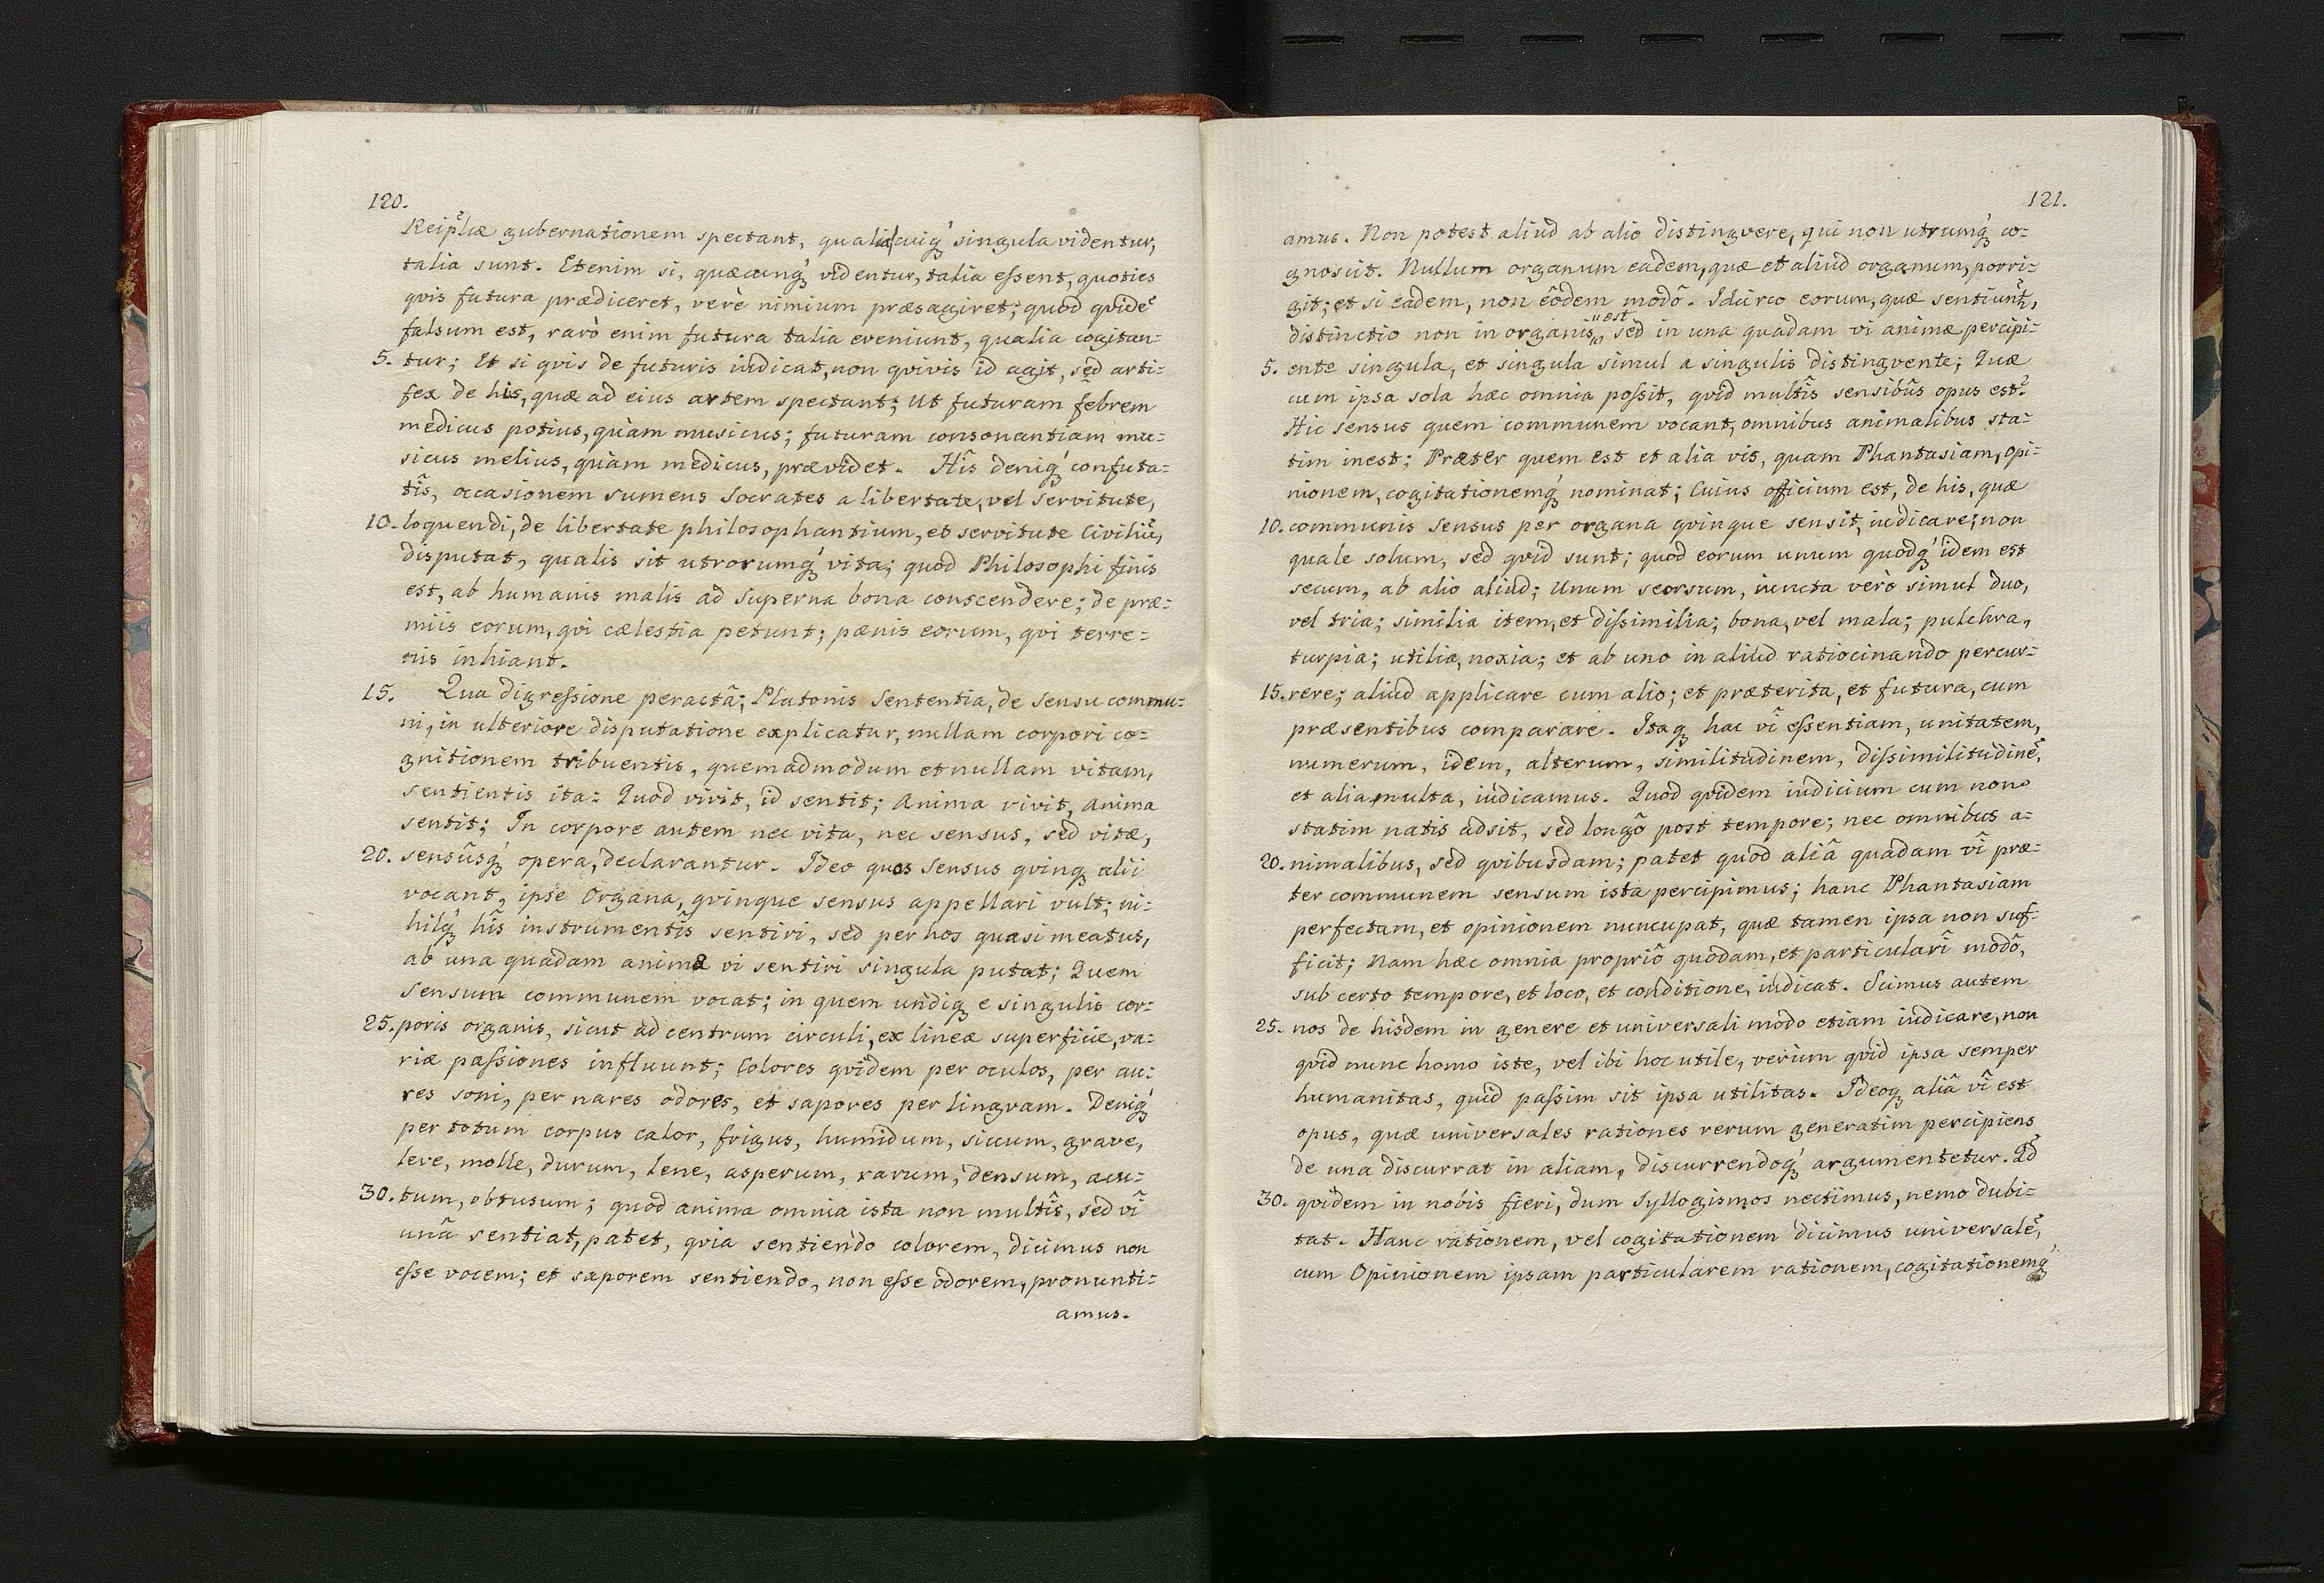 120.
Reip̃læ gubernationem spectant, qualia cuiq́ singula videntur,
talia sunt. Etenim si, quæcunq́ videntur, talia eſsent, quoties
qvis futura prædiceret, verè nimium præsagiret; quod qvidẽ
falsum est, rarò enim futura talia eveniunt, qualia cogitan:
5. tur; Et si qvis de futuris iudicat, non qvivis id agit, sed arti:
fex de his, quæ ad eius artem spectant; Ut futuram febrem
medicus potius, quàm musicus; futuram consonantiam mu:
sicus melius, quàm medicus, prævidet. Hîs deniq́ confuta:
tîs, occasionem sumens Socrates a libertate, vel servitute,
10. loquendi, de libertate philosophantium, et servitute Civiliũ,
disputat, qualis sit utrorumq́ vita; quod Philosophi finis
est, ab humanis malis ad superna bona conscendere; de præ:
miis eorum, qvi cælestia petunt; pænis eorum, qvi terre:
nis inhiant.
15. Qua digreſsione peractâ; Platonis sententia, de sensu commu:
ni, in ulteriore disputatione explicatur, nullam corpori co:
gnitionem tribuentis, quemadmodum et nullam vitam,
sentientis ita: Quod vivit, id sentit; Anima vivit, anima
sentit; In corpore autem nec vita, nec sensus, sed vitæ,
20. sensûsq́ opera, declarantur. Ideo quos sensus qvinq alii
vocant, ipse Organa, qvinque sensus appellari vult; ni:
hilq́ hîs instrumentîs sentiri, sed per hos quasi meatus,
ab una quadam animæ vi sentiri singula putat; Quem
sensum communem vocat; in quem undiq e singulis cor:
25. poris organis, sicut ad centrum circuli, ex lineæ superficie, va:
riæ paſsiones influunt; Colores qvidem per oculos, per au:
res soni, per nares odores, et sapores per lingvam. Deniq́
per totum corpus calor, frigus, humidum, siccum, grave,
leve, molle, durum, lene, asperum, rarum, densum, acu:
30. tum, obtusum; quod anima omnia ista non multîs, sed vî
unâ sentiat, patet, qvia sentiendo colorem, dicimus non
eſse vocem; et saporem sentiendo, non eſse odorem, pronunti:
amus.
121.
amus. Non potest aliud ab alio distingvere, qui non utrumq́ co:
gnoscit. Nullum organum eadem, quæ et aliud organum, porri:
git; et si eadem, non eôdem modô. Idcirco eorum, quæ sentiunt̃,
distinctio non in organis "est, sed in una quadam vi animæ percipi:
5. ente singula, et singula simul a singulis distingvente; Quæ
cum ipsa sola hæc omnia poſsit, qvid multîs sensibûs opus est?
Hic sensus quem communem vocant, omnibus animalibus sta:
tim inest; Præter quem est et alia vis, quam Phantasiam, opi:
nionem, cogitationemq́ nominat; Cuius officium est, de his, quæ
10. communis sensus per organa qvinque sensit, iudicare; non
quale solum, sed qvid sunt; quod eorum unum quodq́ idem est
secum, ab alio aliud; Unum seorsum, iuncta verò simul duo,
vel tria; similia item, et diſsimilia; bona, vel mala; pulchra,
turpia; utilia, noxia; et ab uno in aliud ratiocinando percur:
15. rere; aliud applicare cum alio; et præterita, et futura, cum
præsentibus comparare. Itaq hac vî eſsentiam, unitatem,
numerum, idem, alterum, similitudinem, diſsimilitudinẽ,
et alia multa, iudicamus. Quod qvidem iudicium cum non
statim natis adsit, sed longô post tempore; nec omnibus a:
20. nimalibus, sed qvibusdam; patet quod aliâ quadam vî præ:
ter communem sensum ista percipimus; hanc Phantasiam
perfectam, et opinionem nuncupat, quæ tamen ipsa non suf:
ficit; Nam hæc omnia propriô quodam, et particularî modô,
sub certo tempore, et loco, et conditione, iudicat. Scimus autem
25. nos de hisdem in genere et universali modo etiam iudicare, non
qvid nunc homo iste, vel ibi hoc utile, verùm qvid ipsa semper
humanitas, quid paſsim sit ipsa utilitas. Ideoq aliâ vî est
opus, quæ universales rationes rerum generatim percipiens
de una discurrat in aliam, discurrendoq́ argumentetur. Qd̃
30. qvidem in nobis fieri, dum Syllogismos nectimus, nemo dubi:
tat. Hanc rationem, vel cogitationem dicimus universalẽ,
cum Opinionem ipsam particularem rationem, cogitationemq́